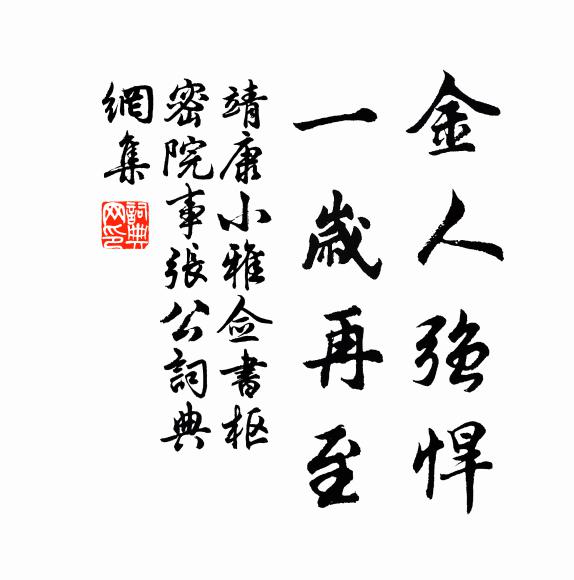 金人強悍
一歲再至
靖康小雅僉書樞
密院事張公詞典
網集
詞典網印